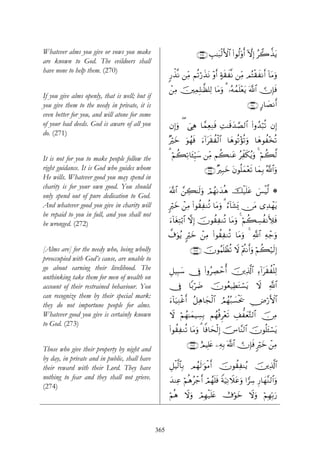 Whatever alms you give or vows you make
are known to God. The evildoers shall
have none to help them. (270)
If you give alms openly, that is well; but if
you give them to the needy in private, it is
even better for you, and will atone for some
of your bad deeds. God is aware of all you
do. (271)
It is not for you to make people follow the
right guidance. It is God who guides whom
He wills. Whatever good you may spend in
charity is for your own good. You should
only spend out of pure dedication to God.
And whatever good you give in charity will
be repaid to you in full, and you shall not
be wronged. (272)
[Alms are] for the needy who, being wholly
preoccupied with God's cause, are unable to
go about earning their livelihood. The
unthinking take them for men of wealth on
account of their restrained behaviour. You
can recognize them by their special mark:
they do not importune people for alms.
Whatever good you give is certainly known
to God. (273)
Those who give their property by night and
by day, in private and in public, shall have
their reward with their Lord. They have
nothing to fear and they shall not grieve.
(274)
يَذَّكَّرُ إِلَّآ أُو۟لُوا۟ ٱلْأَلْبَـٰبِ ﴿٢٦٩﴾
وَمَآ أَنفَقْتُم مِّن نَّفَقَةٍ أَوْ نَذَرْتُم مِّن نَّذْرٍ
فَإِنَّ ٱللَّهَ يَعْلَمُهُۥ ۗ وَمَا لِلظَّـٰلِمِينَ مِنْ
أَنصَارٍ ﴿٢٧٠﴾
إِن تُبْدُوا۟ ٱلصَّدَقَـٰتِ فَنِعِمَّا هِىَ ۖ وَإِن
تُخْفُوهَا وَتُؤْتُوهَا ٱلْفُقَرَآءَ فَهُوَ خَيْرٌ
لَّكُمْ ۚ وَيُكَفِّرُ عَنكُم مِّن سَيِّـَٔاتِكُمْ ۗ
وَٱللَّهُ بِمَا تَعْمَلُونَ خَبِيرٌ ﴿٢٧١﴾
۞ لَّيْسَ عَلَيْكَ هُدَىٰهُمْ وَلَـٰكِنَّ ٱللَّهَ
يَهْدِى مَن يَشَآءُ ۗ وَمَا تُنفِقُوا۟ مِنْ خَيْرٍ
فَلِأَنفُسِكُمْ ۚ وَمَا تُنفِقُونَ إِلَّا ٱبْتِغَآءَ
وَجْهِ ٱللَّهِ ۚ وَمَا تُنفِقُوا۟ مِنْ خَيْرٍ يُوَفَّ
إِلَيْكُمْ وَأَنتُمْ لَا تُظْلَمُونَ ﴿٢٧٢﴾
لِلْفُقَرَآءِ ٱلَّذِينَ أُحْصِرُوا۟ فِى سَبِيلِ
ٱللَّهِ لَا يَسْتَطِيعُونَ ضَرْبًا فِى
ٱلْأَرْضِ يَحْسَبُهُمُ ٱلْجَاهِلُ أَغْنِيَآءَ
مِنَ ٱلتَّعَفُّفِ تَعْرِفُهُم بِسِيمَـٰهُمْ لَا
يَسْـَٔلُونَ ٱلنَّاسَ إِلْحَافًا ۗ وَمَا تُنفِقُوا۟
مِنْ خَيْرٍ فَإِنَّ ٱللَّهَ بِهِۦ عَلِيمٌ ﴿٢٧٣﴾
ٱلَّذِينَ يُنفِقُونَ أَمْوَٰلَهُم بِٱلَّيْلِ
وَٱلنَّهَارِ سِرًّا وَعَلَانِيَةً فَلَهُمْ أَجْرُهُمْ عِندَ
رَبِّهِمْ وَلَا خَوْفٌ عَلَيْهِمْ وَلَا هُمْ
365